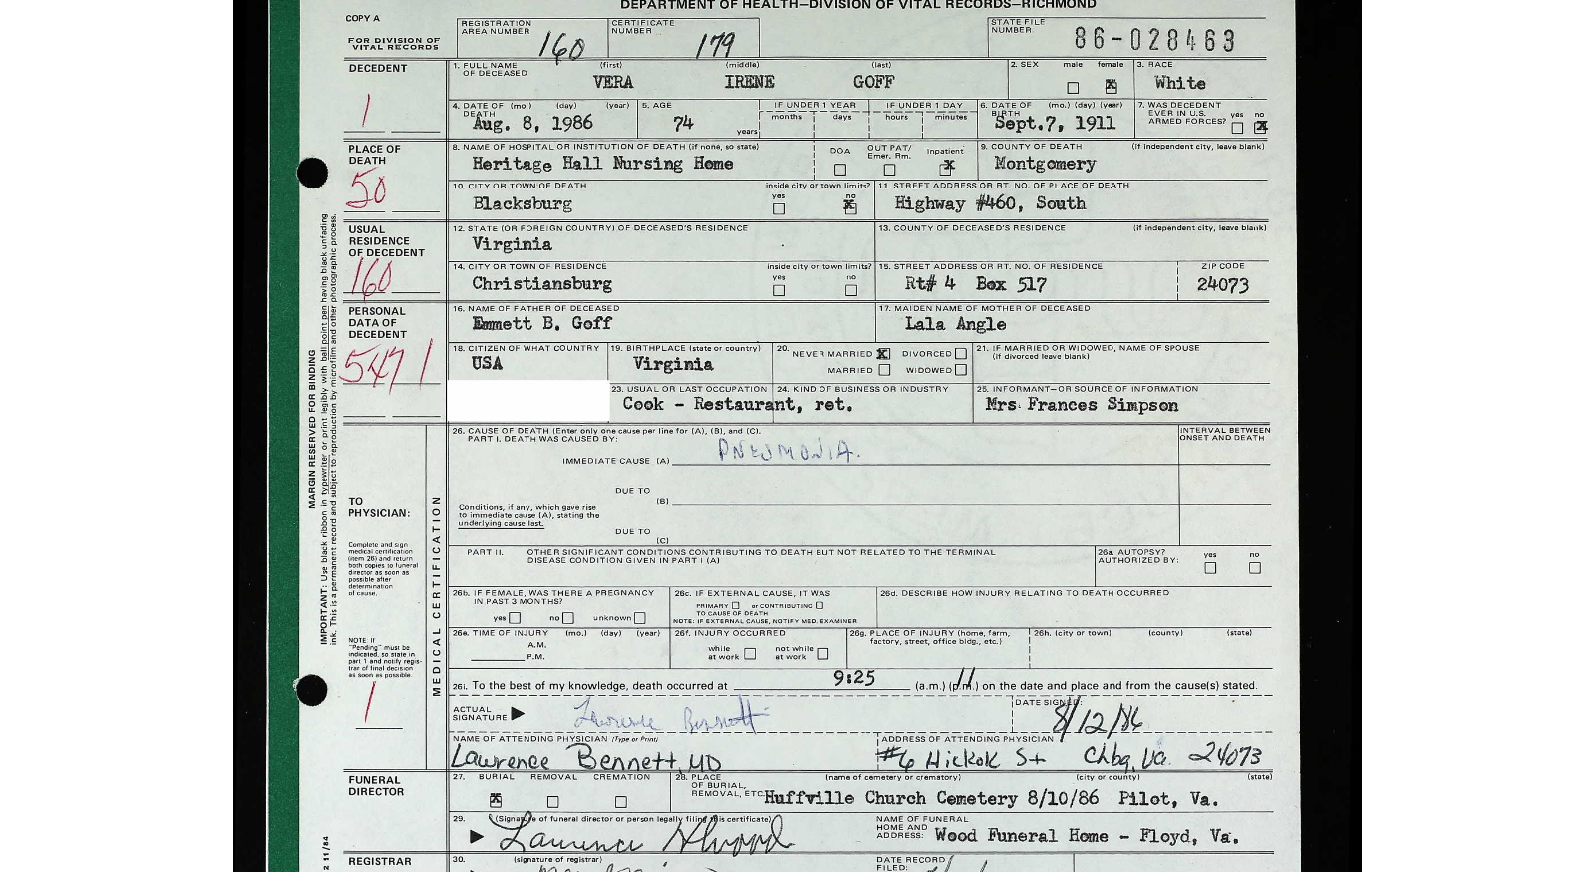 DEPARTMENT OF HEALTH—DIVISION OF VITAL RECORDS—RICHMOND
COPY A
FOR DIVISION OF VITAL RECORDS
REGISTRATION AREA NUMBER 160
CERTIFICATE NUMBER 179
STATE FILE NUMBER 86-028463
DECEDENT
1
1. FULL NAME OF DECEASED (first) (middle) (last)
VERA IRENE GOFF
2. SEX male female
3. RACE
White
4. DATE OF DEATH (mo) (day) (year)
Aug. 8, 1986
5. AGE
74 years
IF UNDER 1 YEAR months days
IF UNDER 1 DAY hours minutes
6. DATE OF BIRTH (mo.) (day) (year)
Sept.7, 1911
7. WAS DECEDENT EVER IN U.S. ARMED FORCES? yes no
PLACE OF DEATH
50
8. NAME OF HOSPITAL OR INSTITUTION OF DEATH (if none, so state)
Heritage Hall Nursing Home
DOA OUT PAT/ Emer. Rm. Inpatient
9. COUNTY OF DEATH (if independent city, leave blank)
Montgomery
10. CITY OR TOWN OF DEATH inside city or town limits? yes no
Blacksburg
11. STREET ADDRESS OR RT. NO. OF PLACE OF DEATH
Highway #460, South
USUAL RESIDENCE OF DECEDENT
160
12. STATE (OR FOREIGN COUNTRY) OF DECEASED'S RESIDENCE
Virginia
13. COUNTY OF DECEASED'S RESIDENCE (if independent city, leave blank)
14. CITY OR TOWN OF RESIDENCE inside city or town limits? yes no
Christiansburg
15. STREET ADDRESS OR RT. NO. OF RESIDENCE
Rt# 4 Box 517
ZIP CODE
24073
PERSONAL DATA OF DECEDENT
547 1
16. NAME OF FATHER OF DECEASED
Emmett B. Goff
17. MAIDEN NAME OF MOTHER OF DECEASED
Lala Angle
18. CITIZEN OF WHAT COUNTRY
USA
19. BIRTHPLACE (state or country)
Virginia
20. NEVER MARRIED DIVORCED
MARRIED WIDOWED
21. IF MARRIED OR WIDOWED, NAME OF SPOUSE (if divorced leave blank)
23. USUAL OR LAST OCCUPATION
24. KIND OF BUSINESS OR INDUSTRY
Cook - Restaurant, ret.
25. INFORMANT—OR SOURCE OF INFORMATION
Mrs. Frances Simpson
MARGIN RESERVED FOR BINDING
IMPORTANT: Use black ribbon in typewriter or print legibly with ball point pen having black unfading ink. This is a permanent record and subject to reproduction by microfilm and other photographic process.
TO PHYSICIAN:
Complete and sign medical certification (item 26) and return both copies to funeral director as soon as possible after determination of cause.
NOTE: If "Pending" must be indicated, so state in part 1 and notify registrar of final decision as soon as possible.
1
MEDICAL CERTIFICATION
26. CAUSE OF DEATH (Enter only one cause per line for (A), (B), and (C).
PART I. DEATH WAS CAUSED BY:
INTERVAL BETWEEN ONSET AND DEATH
IMMEDIATE CAUSE (A) PNEUMONIA.
DUE TO (B)
Conditions, if any, which gave rise to immediate cause (A), stating the underlying cause last.
DUE TO (C)
PART II. OTHER SIGNIFICANT CONDITIONS CONTRIBUTING TO DEATH BUT NOT RELATED TO THE TERMINAL DISEASE CONDITION GIVEN IN PART I (A)
26a AUTOPSY? AUTHORIZED BY: yes no
26b. IF FEMALE, WAS THERE A PREGNANCY IN PAST 3 MONTHS?
yes no unknown
26c. IF EXTERNAL CAUSE, IT WAS
PRIMARY or CONTRIBUTING
TO CAUSE OF DEATH
NOTE: IF EXTERNAL CAUSE, NOTIFY MED. EXAMINER
26d. DESCRIBE HOW INJURY RELATING TO DEATH OCCURRED
26e. TIME OF INJURY (mo.) (day) (year)
A.M.
P.M.
26f. INJURY OCCURRED
while at work not while at work
26g. PLACE OF INJURY (home, farm, factory, street, office bldg., etc.)
26h. (city or town) (county) (state)
26i. To the best of my knowledge, death occurred at 9:25 (a.m.) (p.m.) on the date and place and from the cause(s) stated.
ACTUAL SIGNATURE Lawrence Bennett
DATE SIGNED: 8/12/86
NAME OF ATTENDING PHYSICIAN (Type or Print)
Lawrence Bennett, MD
ADDRESS OF ATTENDING PHYSICIAN
#6 Hickok St Chbg, Va. 24073
FUNERAL DIRECTOR
27. BURIAL REMOVAL CREMATION
28. PLACE OF BURIAL, REMOVAL, ETC. (name of cemetery or crematory) (city or county) (state)
Huffville Church Cemetery 8/10/86 Pilot, Va.
29. (Signature of funeral director or person legally filing this certificate)
NAME OF FUNERAL HOME AND ADDRESS: Wood Funeral Home - Floyd, Va.
2 11/84
REGISTRAR
30. (signature of registrar)
DATE RECORD FILED: